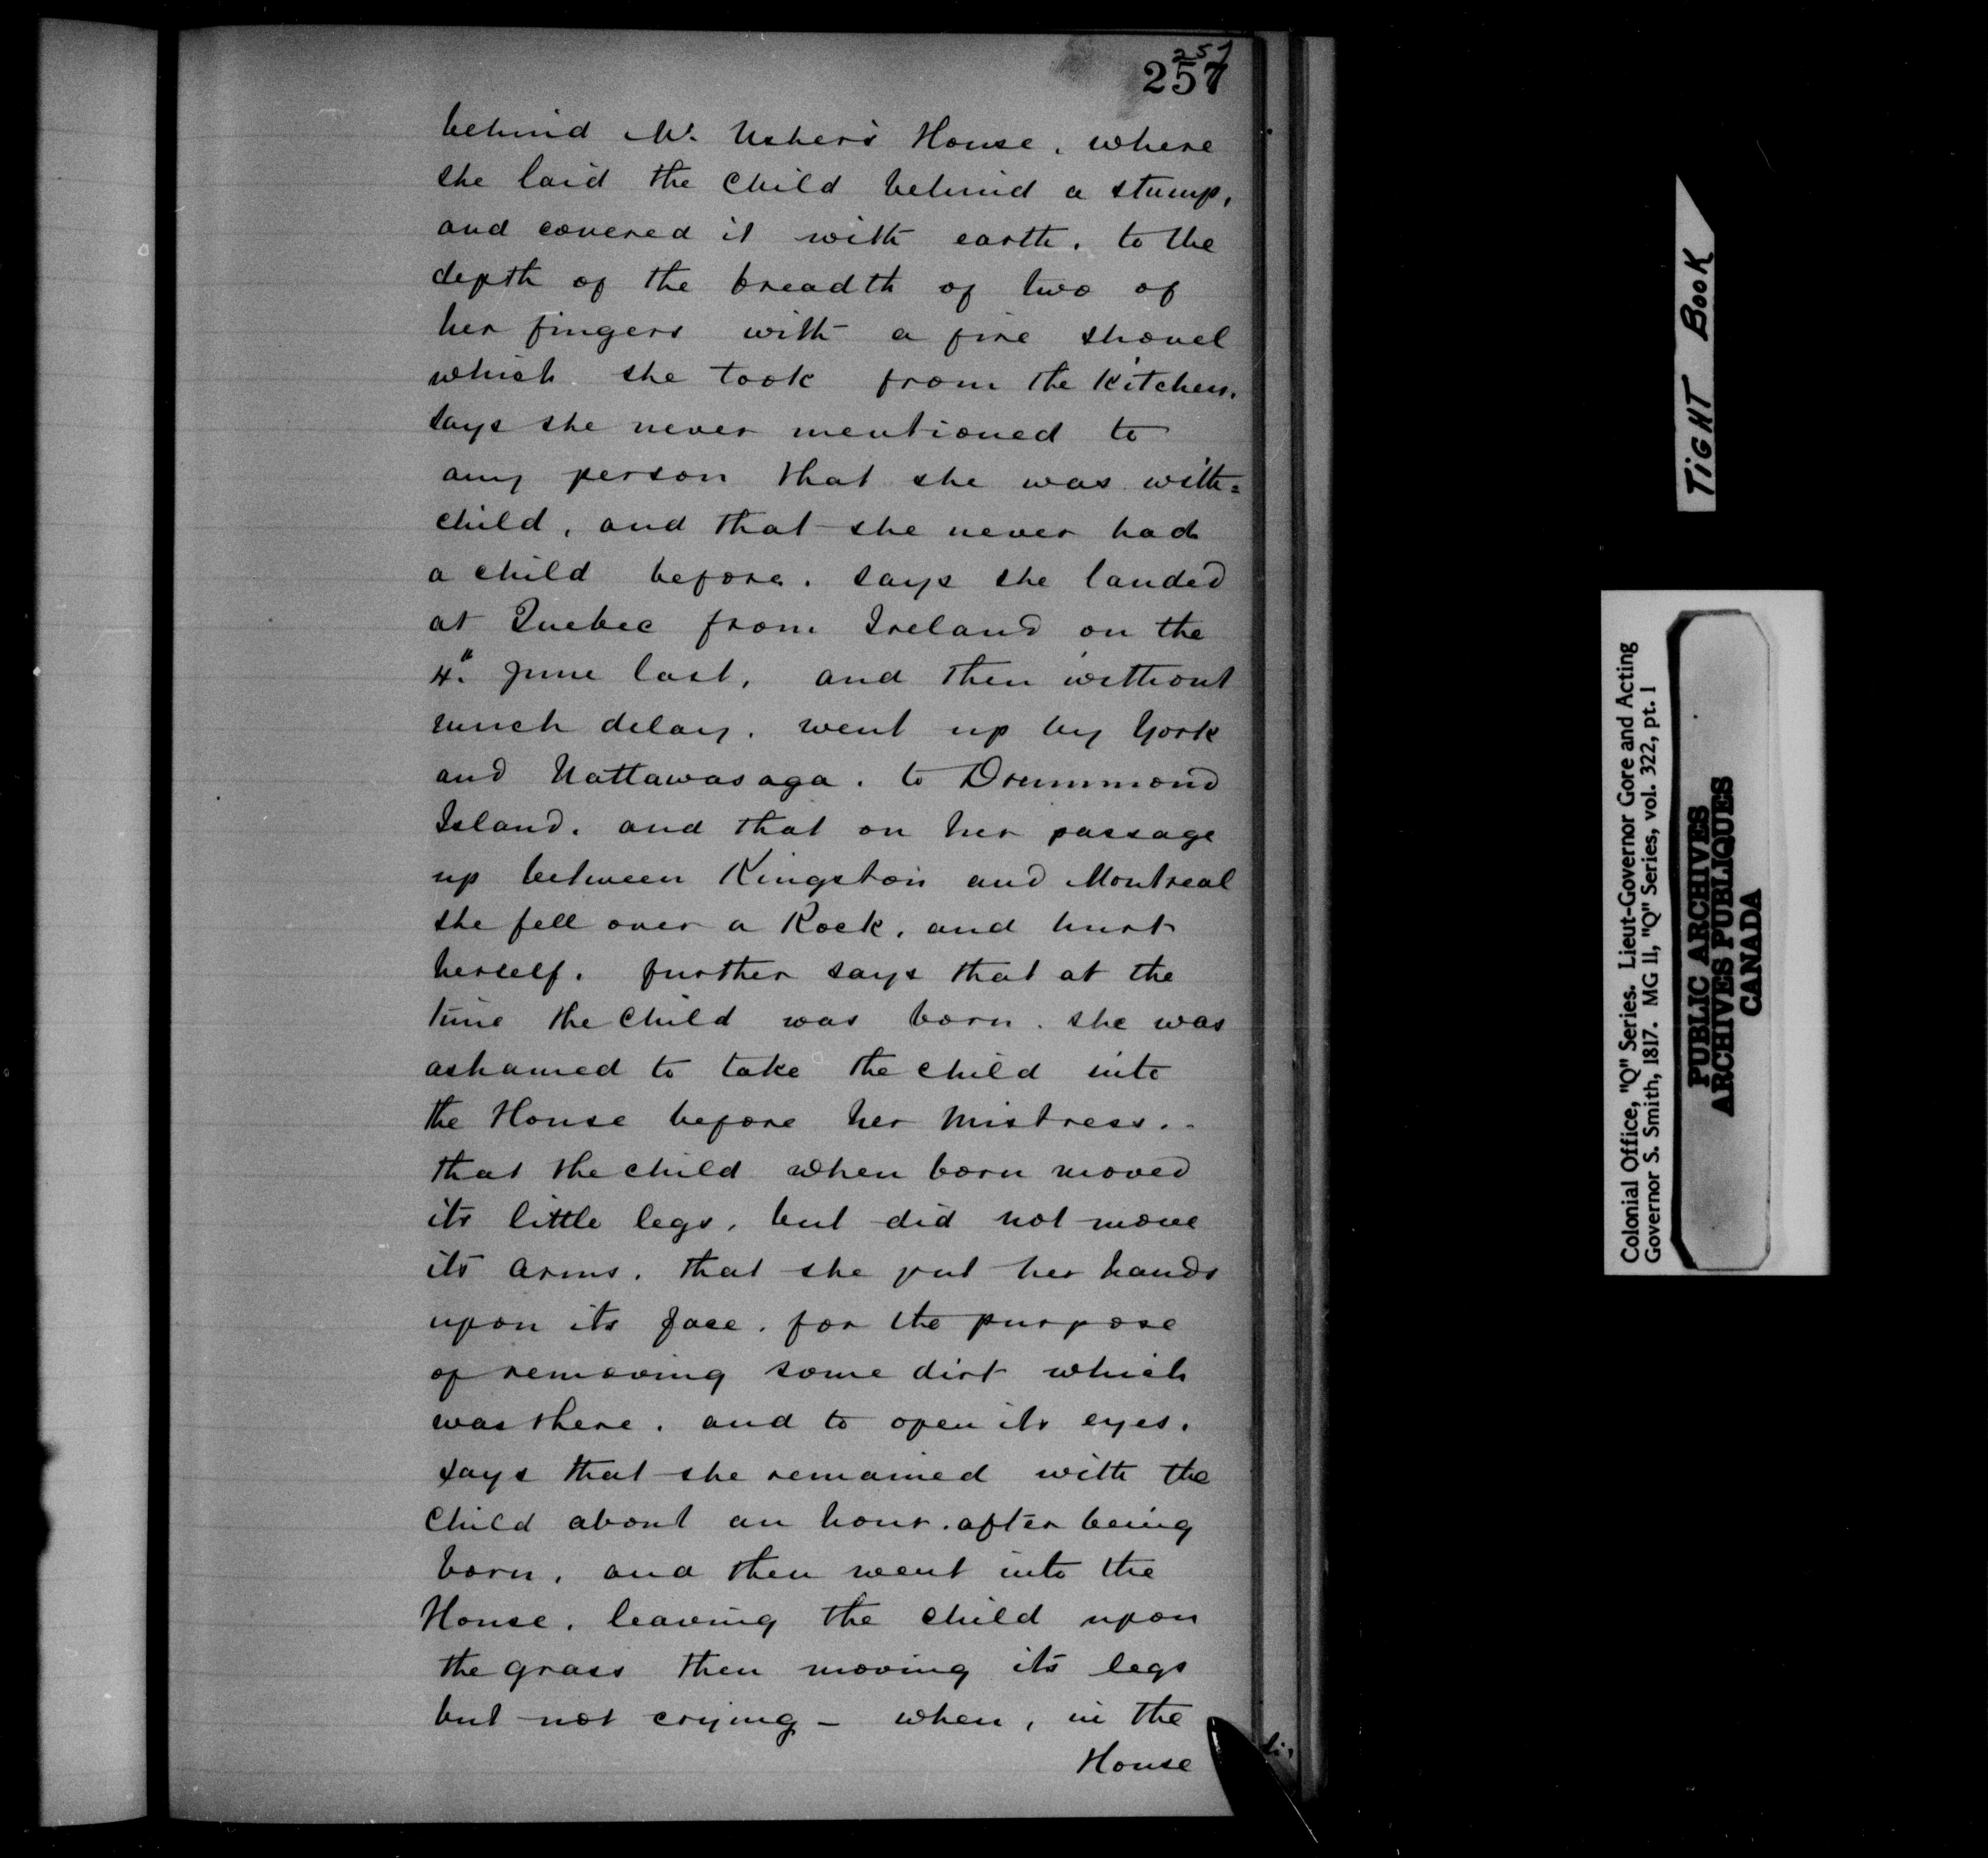 257
257
behind Mr. Usher's House, where
she laid the child behind a stump,
and covered it with earth, to the
depth of the breadth of two of
her fingers with a fire shovel
which she took from the Kitchen.
says she never mentioned to
any person that she was with=
child, and that she never had
a child before. says she landed
at Quebec from Ireland on the
4." June last, and then without
much delay, went up by York
and Nattawasaga, to Drummond
Island, and that on her passage
up between Kingston and Montreal
she fell over a Rock, and hurt
herself. further says that at the
time the child was born, she was
ashamed to take the child into
the House before her Mistress. -
that the child when born moved
its little legs, but did not move
its arms, that she put her hands
upon its face, for the purpose
of removing some dirt which
was there, and to open its eyes.
says that she remained with the
Child about an hour, after being
born, and then went into the
House, leaving the child upon
the grass then moving its legs
but not crying - when, in the
House
TIGHT BOOK
Colonial Office, "Q" Series. Lieut-Governor Gore and Acting
Governor S. Smith, 1817. MG 11, "Q" Series, vol. 322, pt. 1
PUBLIC ARCHIVES
ARCHIVES PUBLIQUES
CANADA